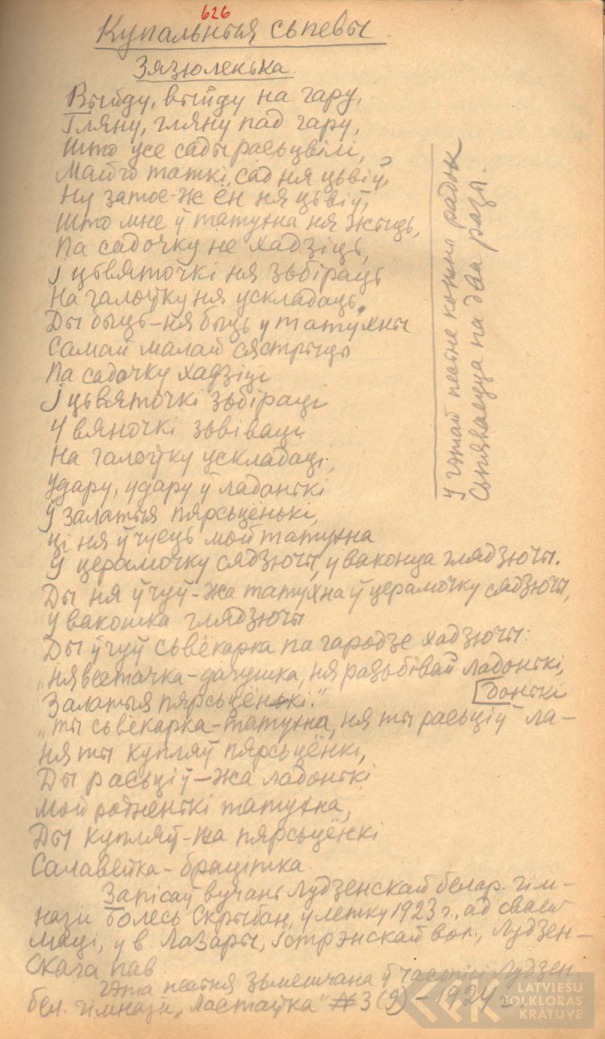 626
Купальныя сьпевы
Зязюленька
Выйду, выйду на гару,
Гляну, гляну пад гару,
Што усе сады расьцвілі,
Майго таткі сад ня цьвіў,
Ну затое-ж ён ня цьвіў,
Што мне ў татухны ня жыць,
Па садочку не хадзіць,
І цьвяточкі ня зьбіраць
На галоўку ня ускладаць.
Ды быць-ня быць у татухны
Самай малай сястрыцы
Па садочку хадзіці
І цьвяточкі зьбіраці
У вяночкі зьвіваці
На галоўку ускладаці,
Удару, удару ў ладонькі
Ў залатыя пярсьцёнькі,
Ці ня ўчуець мой татухна
Ў церамочку сядзючы, у ваконца глядзючы.
Ды ня ўчуў-жа татухна ў церамочку сядзючы,
У вакошка глядзючы
Ды ўчуў сьвёкарка па гародзе хадзючы:
„Нявестачка-дачушка, ня разьбівай ладонькі,
Залатыя пярсьцёнькі."
„Ты сьвёкарка-татухна, ня ты расьціў ла-
[донькі
Ня ты купляў пярсьцёнкі,
Ды расьціў-жа ладонькі
Мой родненькі татухна,
Ды купляў-жа пярсьцёнкі
Салавейка-брацітка.
Запісаў вучань Лудзенскай белар. гім-
назіі Болесь Скрыбан, ў летку 1923 г., ад сваей
маці, у в. Лазары, Істрэнскай вол., Лудзен-
скага пав
Гэта песьня зьмешчана ў часопісі Лудзен.
бел. гімназіі „Ластаўка" # 3 (9) - 1924
У гэтай песьне кожны радок
Сьпяваецца па два раза.
LATVIEŠU
FOLKLORAS
KRĀTUVE